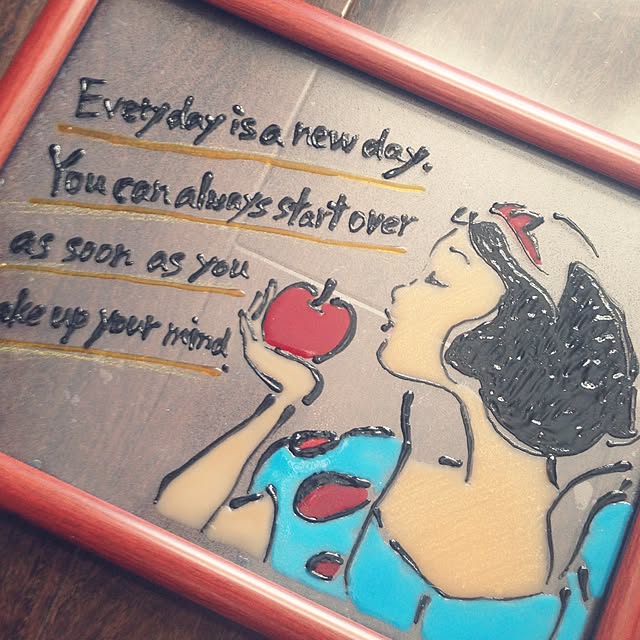 Everyday is a new day.
You can always start over
as soon as you
make up your mind.